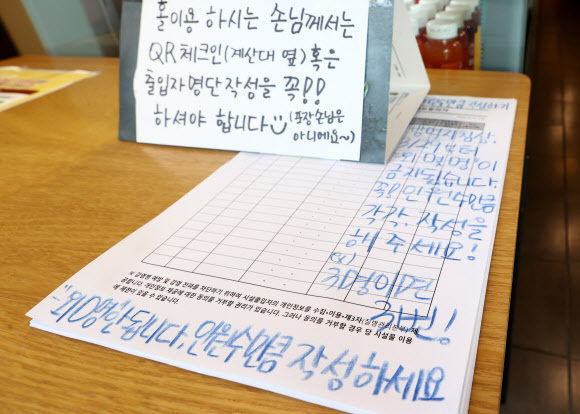 홀이용 하시는 손님께서는
QR체크인(계산대 옆)혹은
출입자명단작성을 꼭!!
하셔야 합니다
(포장손님은
아니에요~)
작성하기
부터
"외 몇명"이
금지됩니다.
꼭! 인원수만큼
각각, 작성을
해 주세요!
3명이면
3번!
※ 감염병 예방 및 감염 전파를 차단하기 위하여 시설출입자의 개인정보를 수집·이용·제3자
공합니다. 개인정보 제공에 대한 동의를 거부할 권리가 있습니다. 그러나 동의를 거부할 경우 당 시설물 이용
에 제한이 있을 수 있습니다.
"외0명" 안됩니다. 인원수만큼 작성하세요